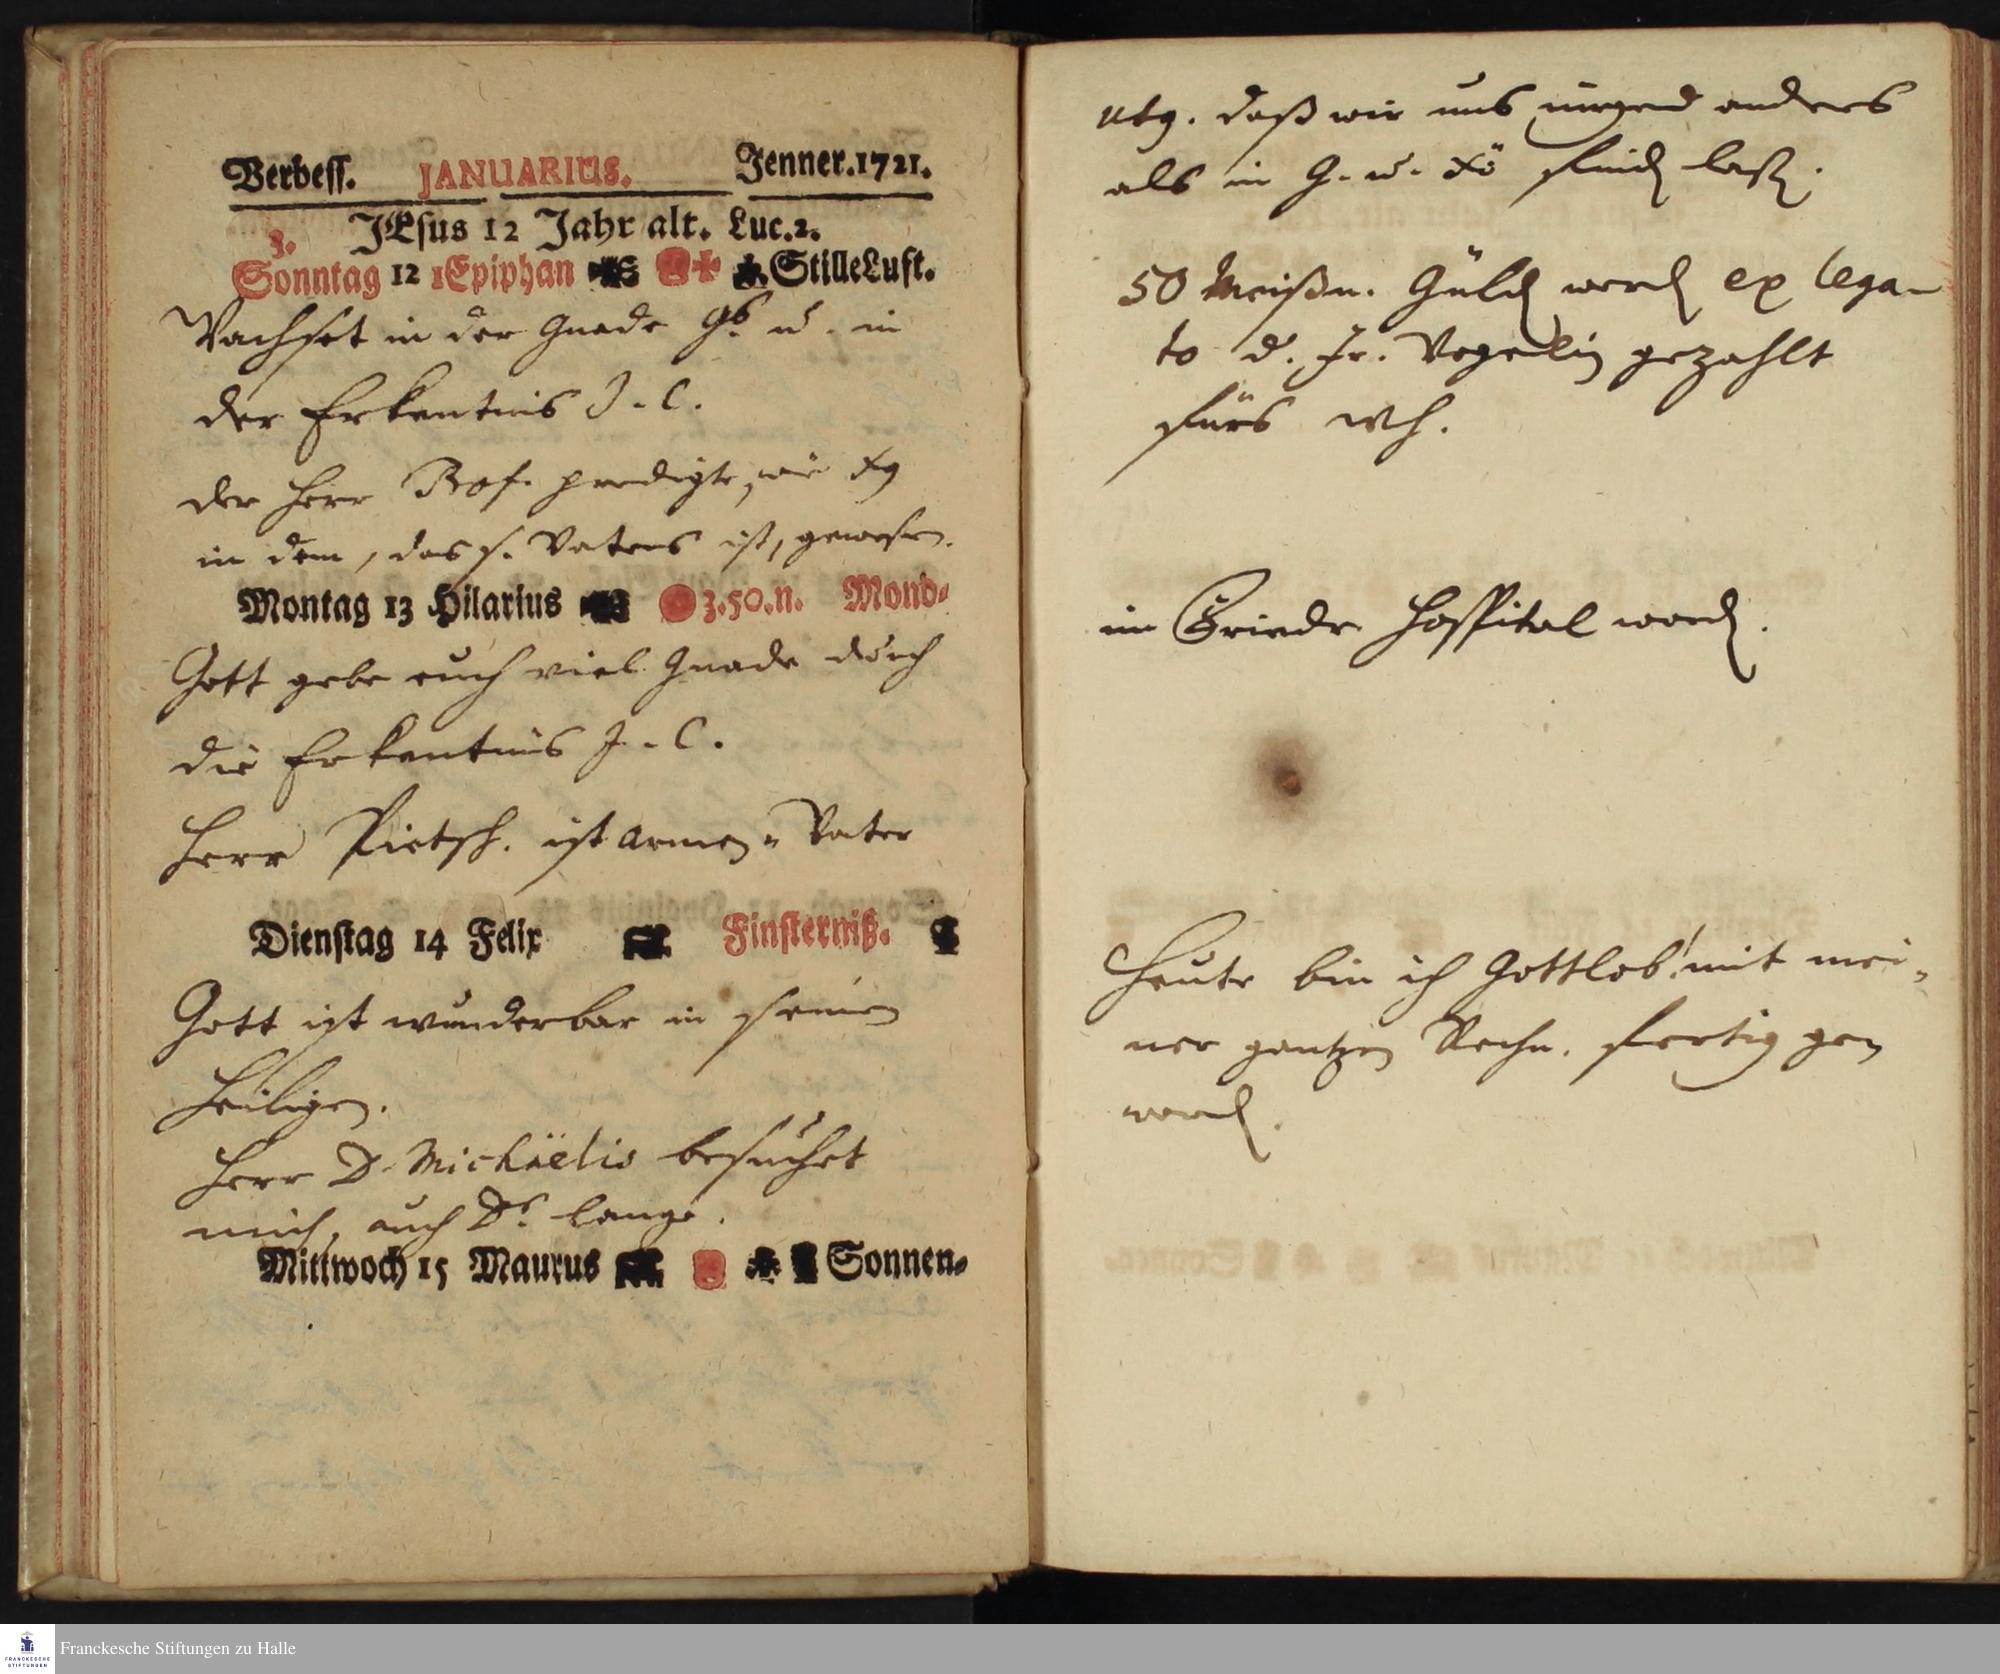 Verbess. JANUARIUS. Jenner.1721.
JEsus 12 Jahr alt. Luc.2.
3.
Sonntag 12 1Epiphan StilleLuft.
Wachset in der Gnade Gs. u. in
der Erkentnis J. C.
der Herr Prof. predigte, wie Xg
in dem, das s. Vaters ist, gewesen.
Montag 13 Hilarius 3.50.n. Mond-
Gott gebe euch viel Gnade durch
die Erkentnis J. C.
Herr Pietsch. ist Armen-Vater
Dienstag 14 Felix Finsterniß.
Gott ist wunderbar in seinen
Heiligen.
Herr D. Michäelis besuchet
mich, auch Dr. Lange.
Mittwoch 15 Maurus Sonnen-
daß wir uns nirgend anders
als in G. u. Xo finden laßen.
50 Meißn. Gülden werden ex lega-
to d. Fr. Vogelin gezahlt
fürs Wh.
im Hospital worden.
Heute bin ich Gottlob! mit mei-
ner gantzen Rechn. fertig
worden.
Franckesche Stiftungen zu Halle
FRANCKESCHE
STIFTUNGEN